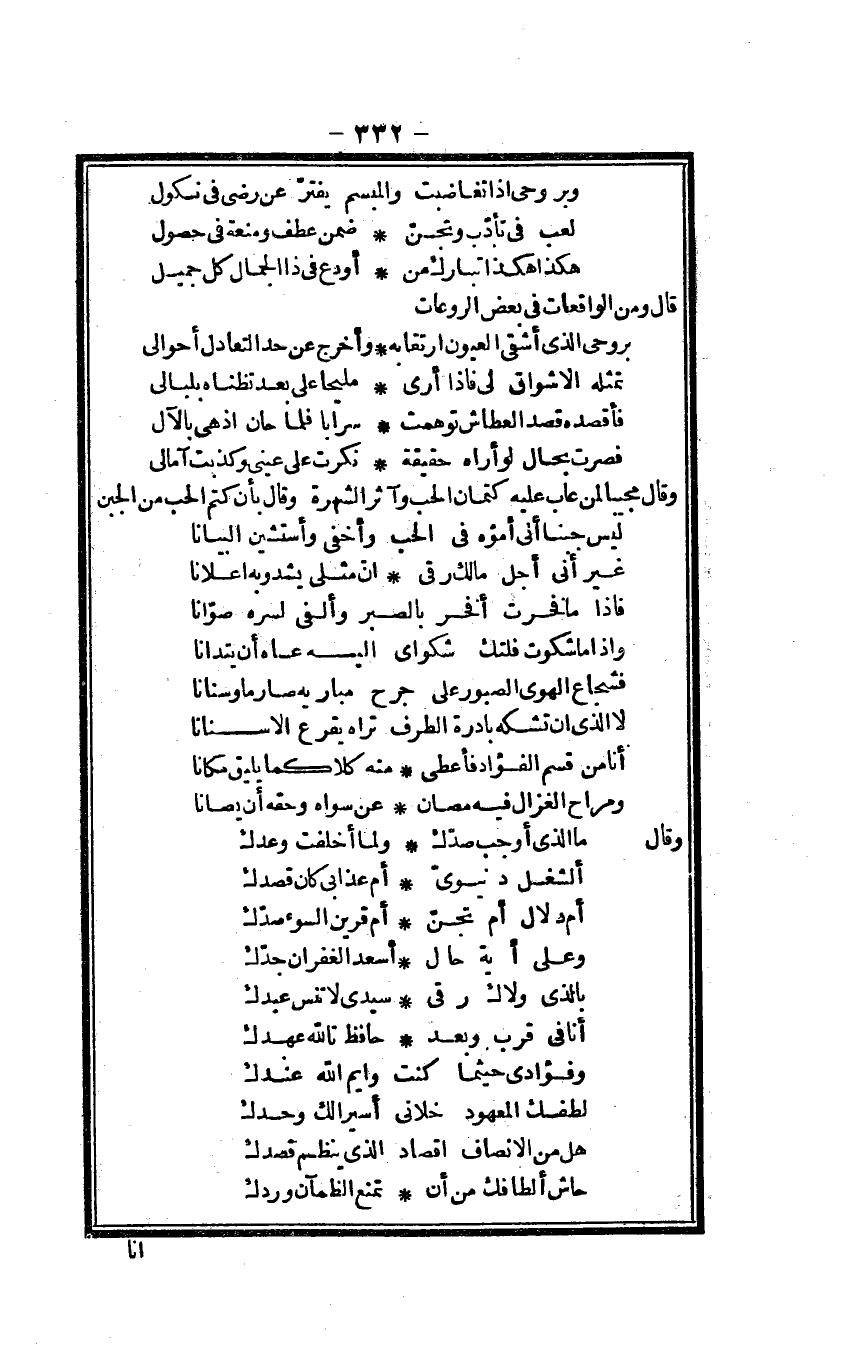 - ٣٣٢ -
وبروحى اذا تغاضبت والمبسم يفترّ عن رضى فى نكول
لعب فى تأدّب وتجنّ * ضمن عطف ومنعة فى حصول
هكذا هكذا تبارك من * أودع فى ذا الجمال كل جميل
قال ومن الواقعات فى بعض الروعات
بروحى الذى أشقى العيون ارتقابه * وأخرج عن حد التعادل أحوالى
تمثله الاشواق لى فاذا أرى * مليحا على بعد تظناه بلبالى
فأقصده قصد العطاش توهمت * سرابا فلما حان اذ هى بالآل
فصرت بحال لو أراه حقيقة * نكرت على عينى وكذبت آمالى
وقال مجيبا لمن عاب عليه كتمان الحب وآثر الشهرة وقال بأن كتم الحب من الجبن
ليس جبنا أنى أموّه فى الحب وأخفى وأستشين البيانا
غير أنى أجل مالك رقى * انّ مثلى يشدو به اعلانا
فاذا ما فخرت أفخر بالصبر وألفى لسره صوّانا
واذا ما شكوت فلتك شكواى اليه عساه أن يتدانا
فشجاع الهوى الصبور على جرح مباريه صارما وسنانا
لا الذى ان تشكه بادرة الطرف تراه يقرع الاسنانا
أنا من قسم الفؤاد فأعطى * منه كلا كما يليق مكانا
ومراح الغزال فيه مصان * عن سواه وحقه أن يصانا
وقال ما الذى أوجب صدّك * ولما أخلفت وعدك
ألشغل دنيوىّ * أم عذابى كان قصدك
أم دلال أم تجنّ * أم قرين السوء صدّك
وعلى أية حال * أسعد الغفران جدّك
بالذى ولاك رقى * سيدى لا تنس عبدك
أنا فى قرب وبعد * حافظ تالله عهدك
وفؤادى حيثما كنت وايم الله عندك
لطفك المعهود خلانى أسيرا لك وحدك
هل من الانصاف اقصاد الذى ينظم قصدك
حاش ألطافك من أن * تمنع الظمآن وردك
انا